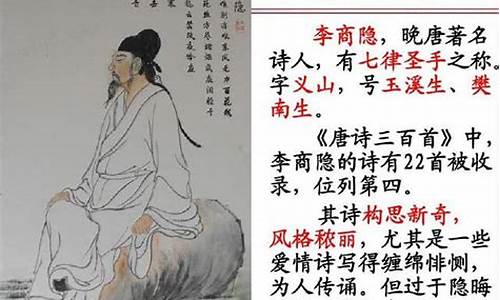 隐
李商隐，晚唐著名
诗人，有七律圣手之称。
字义山，号玉溪生、樊
南生。
《唐诗三百首》中，
李商隐的诗有22首被收
录，位列第四。
其诗构思新奇，
风格秾丽，尤其是一些
爱情诗写得缠绵悱恻，
为人传诵。但过于隐晦